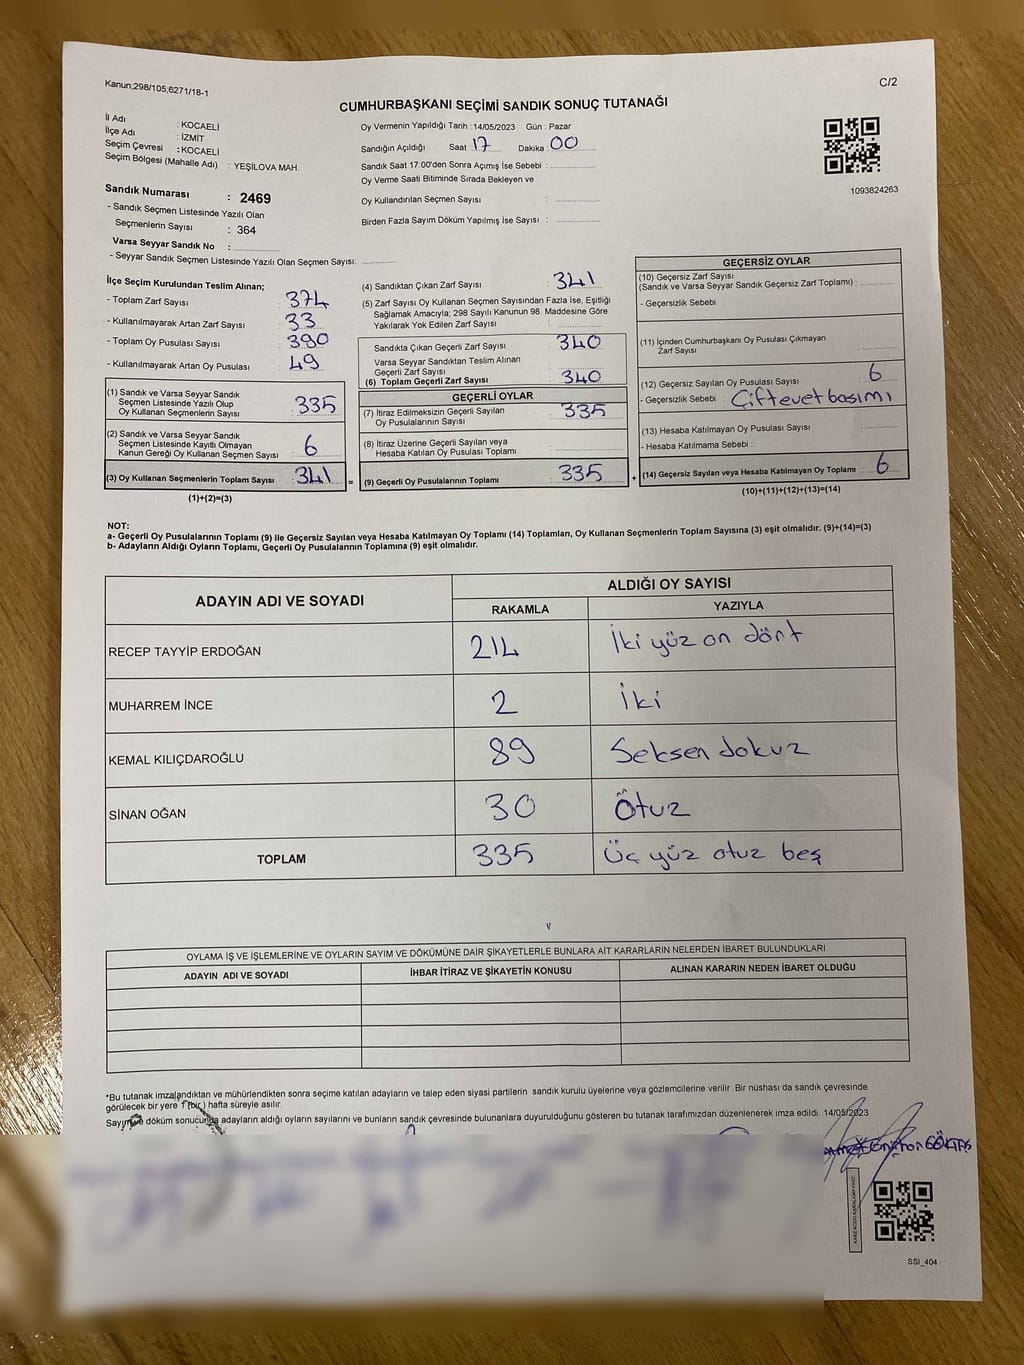 Kanun;298/105;6271/18-1
C/2
CUMHURBAŞKANI SEÇİMİ SANDIK SONUÇ TUTANAĞI
İl Adı : KOCAELİ
İlçe Adı : İZMİT
Seçim Çevresi : KOCAELİ
Seçim Bölgesi (Mahalle Adı) : YEŞİLOVA MAH.
Sandık Numarası : 2469
- Sandık Seçmen Listesinde Yazılı Olan
Seçmenlerin Sayısı : 364
Varsa Seyyar Sandık No :
- Seyyar Sandık Seçmen Listesinde Yazılı Olan Seçmen Sayısı:
Oy Vermenin Yapıldığı Tarih : 14/05/2023 Gün : Pazar
Sandığın Açıldığı Saat 17 Dakika 00
Sandık Saat 17:00'den Sonra Açımış İse Sebebi :
Oy Verme Saati Bitiminde Sırada Bekleyen ve
Oy Kullandırılan Seçmen Sayısı :
Birden Fazla Sayım Döküm Yapılmış İse Sayısı :
1093824263
İlçe Seçim Kurulundan Teslim Alınan;
- Toplam Zarf Sayısı : 374
- Kullanılmayarak Artan Zarf Sayısı : 33
- Toplam Oy Pusulası Sayısı : 390
- Kullanılmayarak Artan Oy Pusulası : 49
(1) Sandık ve Varsa Seyyar Sandık
Seçmen Listesinde Yazılı Olup
Oy Kullanan Seçmenlerin Sayısı : 335
(2) Sandık ve Varsa Seyyar Sandık
Seçmen Listesinde Kayıtlı Olmayan
Kanun Gereği Oy Kullanan Seçmen Sayısı : 6
(3) Oy Kullanan Seçmenlerin Toplam Sayısı : 341 =
(1)+(2)=(3)
(4) Sandıktan Çıkan Zarf Sayısı : 341
(5) Zarf Sayısı Oy Kullanan Seçmen Sayısından Fazla İse, Eşitliği
Sağlamak Amacıyla; 298 Sayılı Kanunun 98. Maddesine Göre
Yakılarak Yok Edilen Zarf Sayısı :
Sandıkta Çıkan Geçerli Zarf Sayısı : 340
Varsa Seyyar Sandıktan Teslim Alınan
Geçerli Zarf Sayısı :
(6) Toplam Geçerli Zarf Sayısı : 340
GEÇERLİ OYLAR
(7) İtiraz Edilmeksizin Geçerli Sayılan
Oy Pusulalarının Sayısı : 335
(8) İtiraz Üzerine Geçerli Sayılan veya
Hesaba Katılan Oy Pusulası Toplamı :
(9) Geçerli Oy Pusulalarının Toplamı : 335 +
GEÇERSİZ OYLAR
(10) Geçersiz Zarf Sayısı
(Sandık ve Varsa Seyyar Sandık Geçersiz Zarf Toplamı) :
- Geçersizlik Sebebi :
(11) İçinden Cumhurbaşkanı Oy Pusulası Çıkmayan
Zarf Sayısı
(12) Geçersiz Sayılan Oy Pusulası Sayısı : 6
- Geçersizlik Sebebi : Çift evet basımı
(13) Hesaba Katılmayan Oy Pusulası Sayısı :
- Hesaba Katılmama Sebebi :
(14) Geçersiz Sayılan veya Hesaba Katılmayan Oy Toplamı : 6
(10)+(11)+(12)+(13)=(14)
NOT:
a- Geçerli Oy Pusulalarının Toplamı (9) ile Geçersiz Sayılan veya Hesaba Katılmayan Oy Toplamı (14) Toplamları, Oy Kullanan Seçmenlerin Toplam Sayısına (3) eşit olmalıdır. (9)+(14)=(3)
b- Adayların Aldığı Oyların Toplamı, Geçerli Oy Pusulalarının Toplamına (9) eşit olmalıdır.
ADAYIN ADI VE SOYADI
ALDIĞI OY SAYISI
RAKAMLA YAZIYLA
RECEP TAYYİP ERDOĞAN 214 İki yüz on dört
MUHARREM İNCE 2 İki
KEMAL KILIÇDAROĞLU 89 Seksen dokuz
SİNAN OĞAN 30 Otuz
TOPLAM 335 Üç yüz otuz beş
OYLAMA İŞ VE İŞLEMLERİNE VE OYLARIN SAYIM VE DÖKÜMÜNE DAİR ŞİKAYETLERLE BUNLARA AİT KARARLARIN NELERDEN İBARET BULUNDUKLARI
ADAYIN ADI VE SOYADI İHBAR İTİRAZ VE ŞİKAYETİN KONUSU ALINAN KARARIN NEDEN İBARET OLDUĞU
*Bu tutanak imzalandıktan ve mühürlendikten sonra seçime katılan adayların ve talep eden siyasi partilerin sandık kurulu üyelerine veya gözlemcilerine verilir. Bir nüshası da sandık çevresinde
görülecek bir yere 1 (bir) hafta süreyle asılır.
Sayım ve döküm sonucunda adayların aldığı oyların sayılarını ve bunların sandık çevresinde bulunanlara duyurulduğunu gösteren bu tutanak tarafımızdan düzenlenerek imza edildi. 14/05/2023
SSI_404